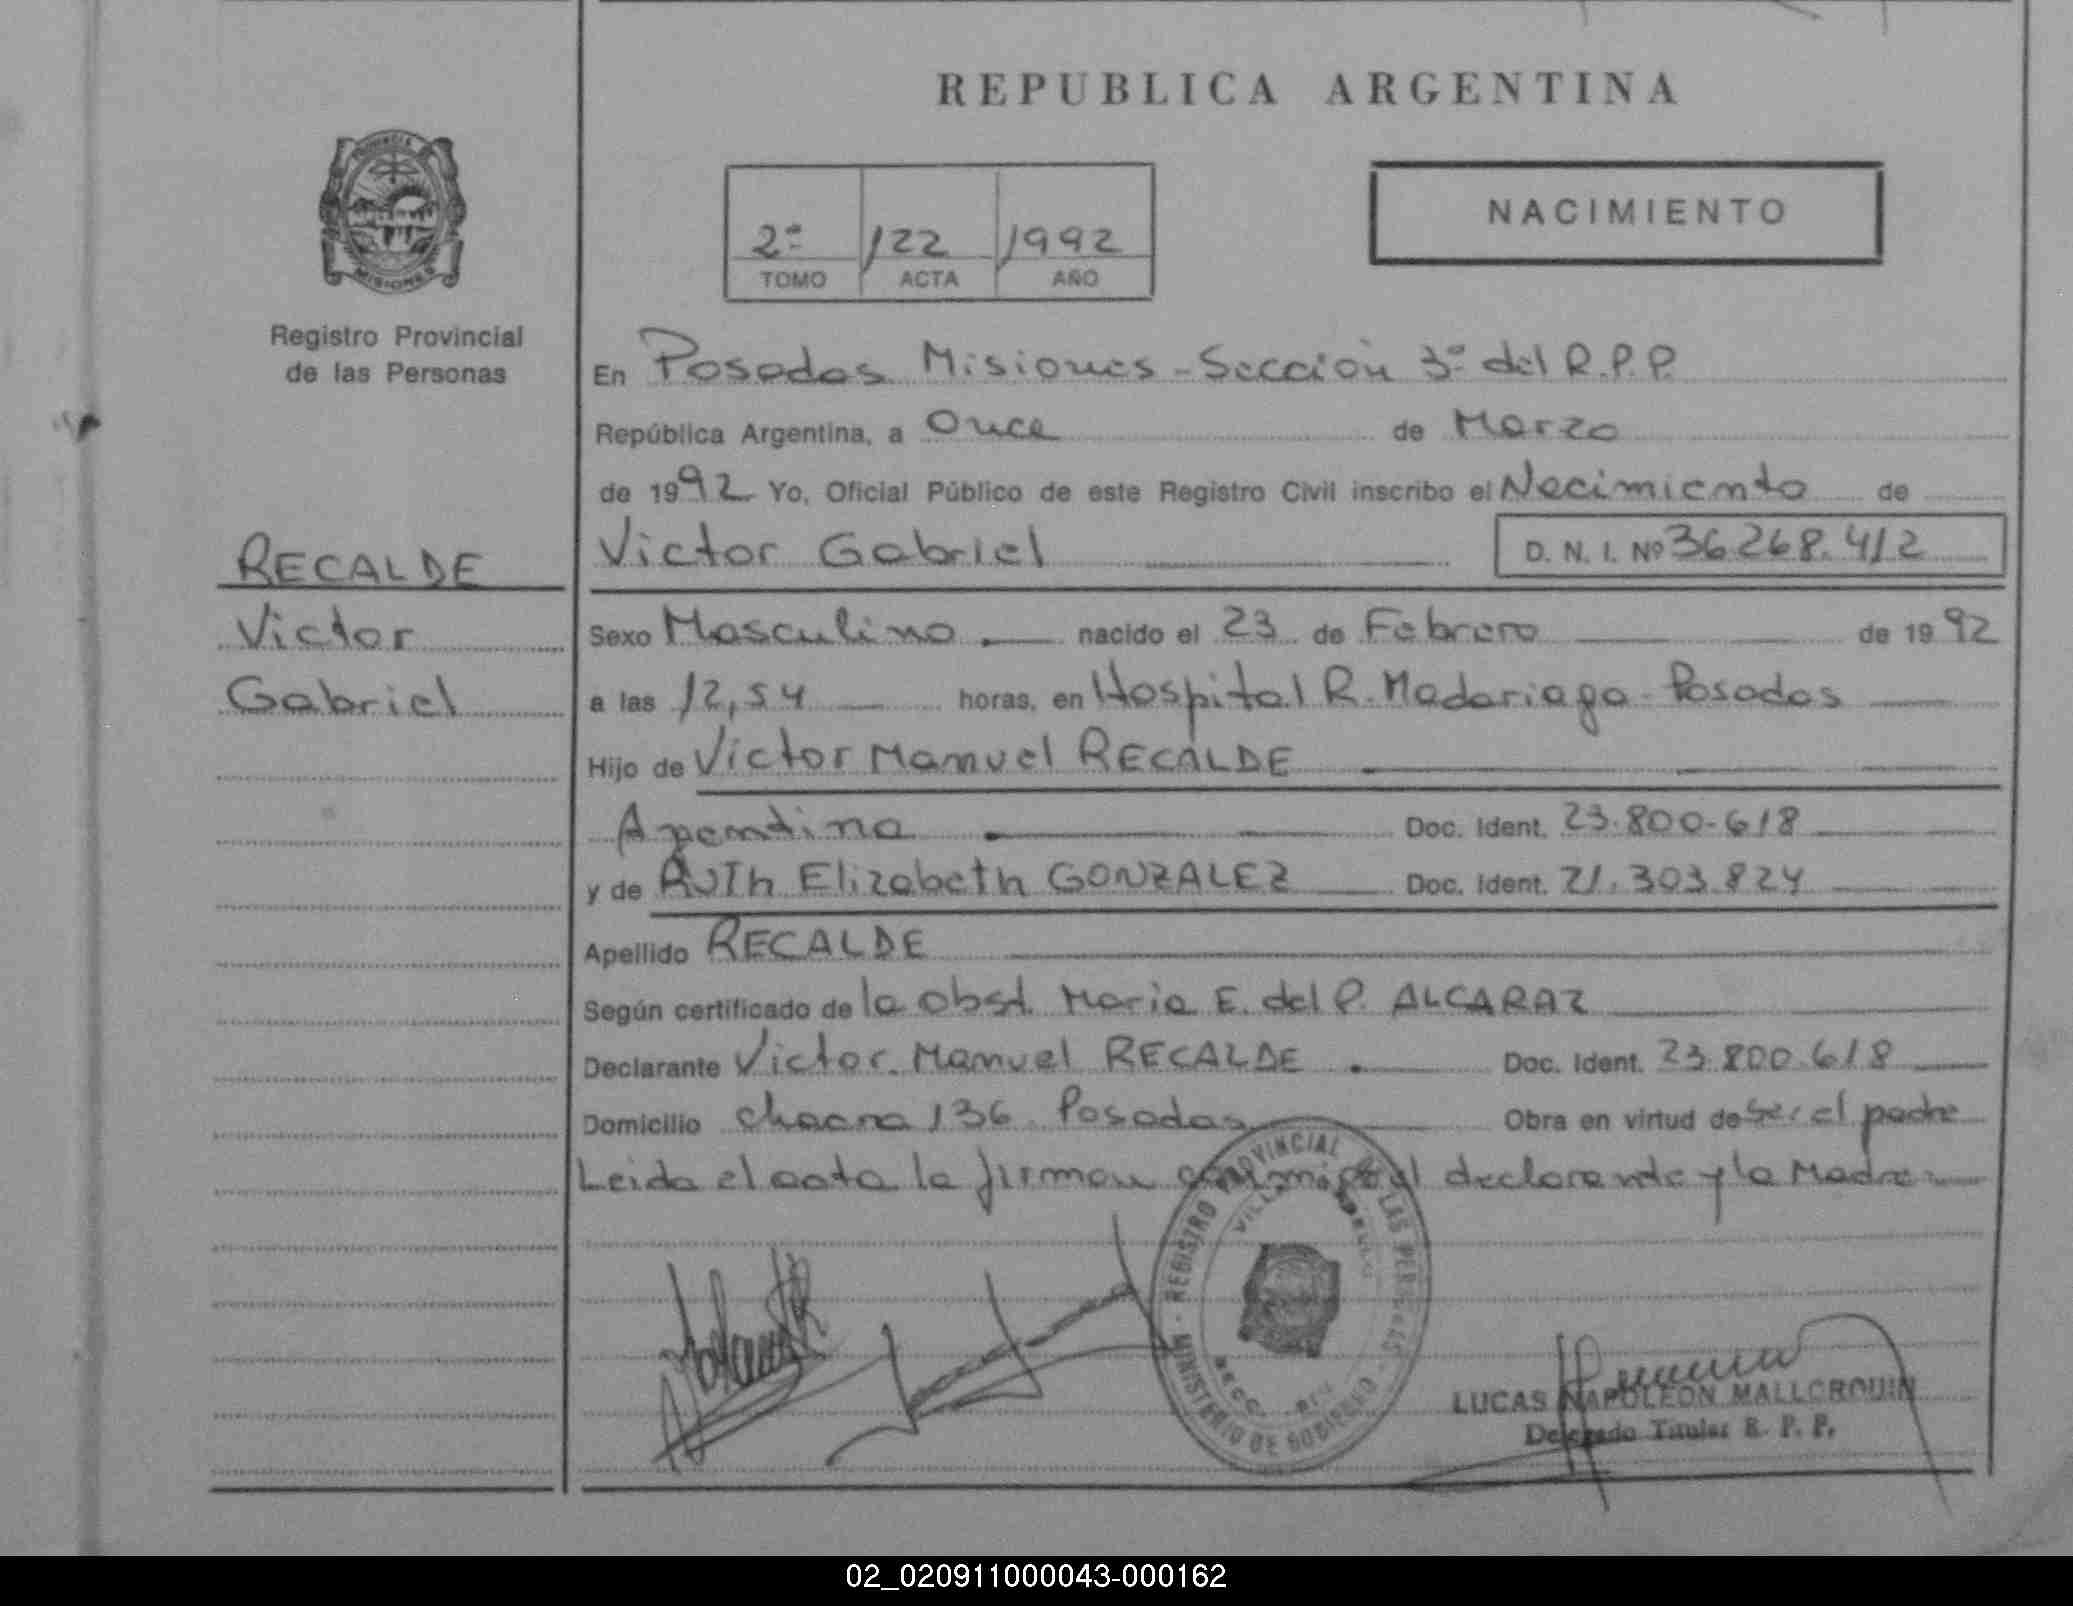 REPUBLICA ARGENTINA
PROVINCIA
MISIONES
Registro Provincial
de las Personas
2º /22 1992
TOMO ACTA AÑO
NACIMIENTO
En Posadas Misiones - Sección 3º del R.P.P.
República Argentina, a Once de Marzo
de 1992 Yo, Oficial Público de este Registro Civil inscribo el Nacimiento de
Victor Gabriel D. N. I. Nº 36.268.412
RECALDE
Victor
Gabriel
Sexo Masculino nacido el 23 de Febrero de 1992
a las 12,54 horas, en Hospital R. Madariaga - Posadas
Hijo de Victor Manuel RECALDE
Argentina Doc. Ident. 23.800.618
y de Ruth Elizabeth GONZALEZ Doc. Ident. 21.303.824
Apellido RECALDE
Según certificado de la obst. Maria E. del P. ALCARAZ
Declarante Victor Manuel RECALDE Doc. Ident. 23.800.618
Domicilio chacra 136 Posadas Obra en virtud de ser el padre
Leida el acta la firman conmigo el declarante y la Madre
REGISTRO PROVINCIAL DE LAS PERSONAS
MINISTERIO DE GOBIERNO
LUCAS NAPOLEON MALLORQUIN
Delegado Titular R. P. P.
02_020911000043-000162